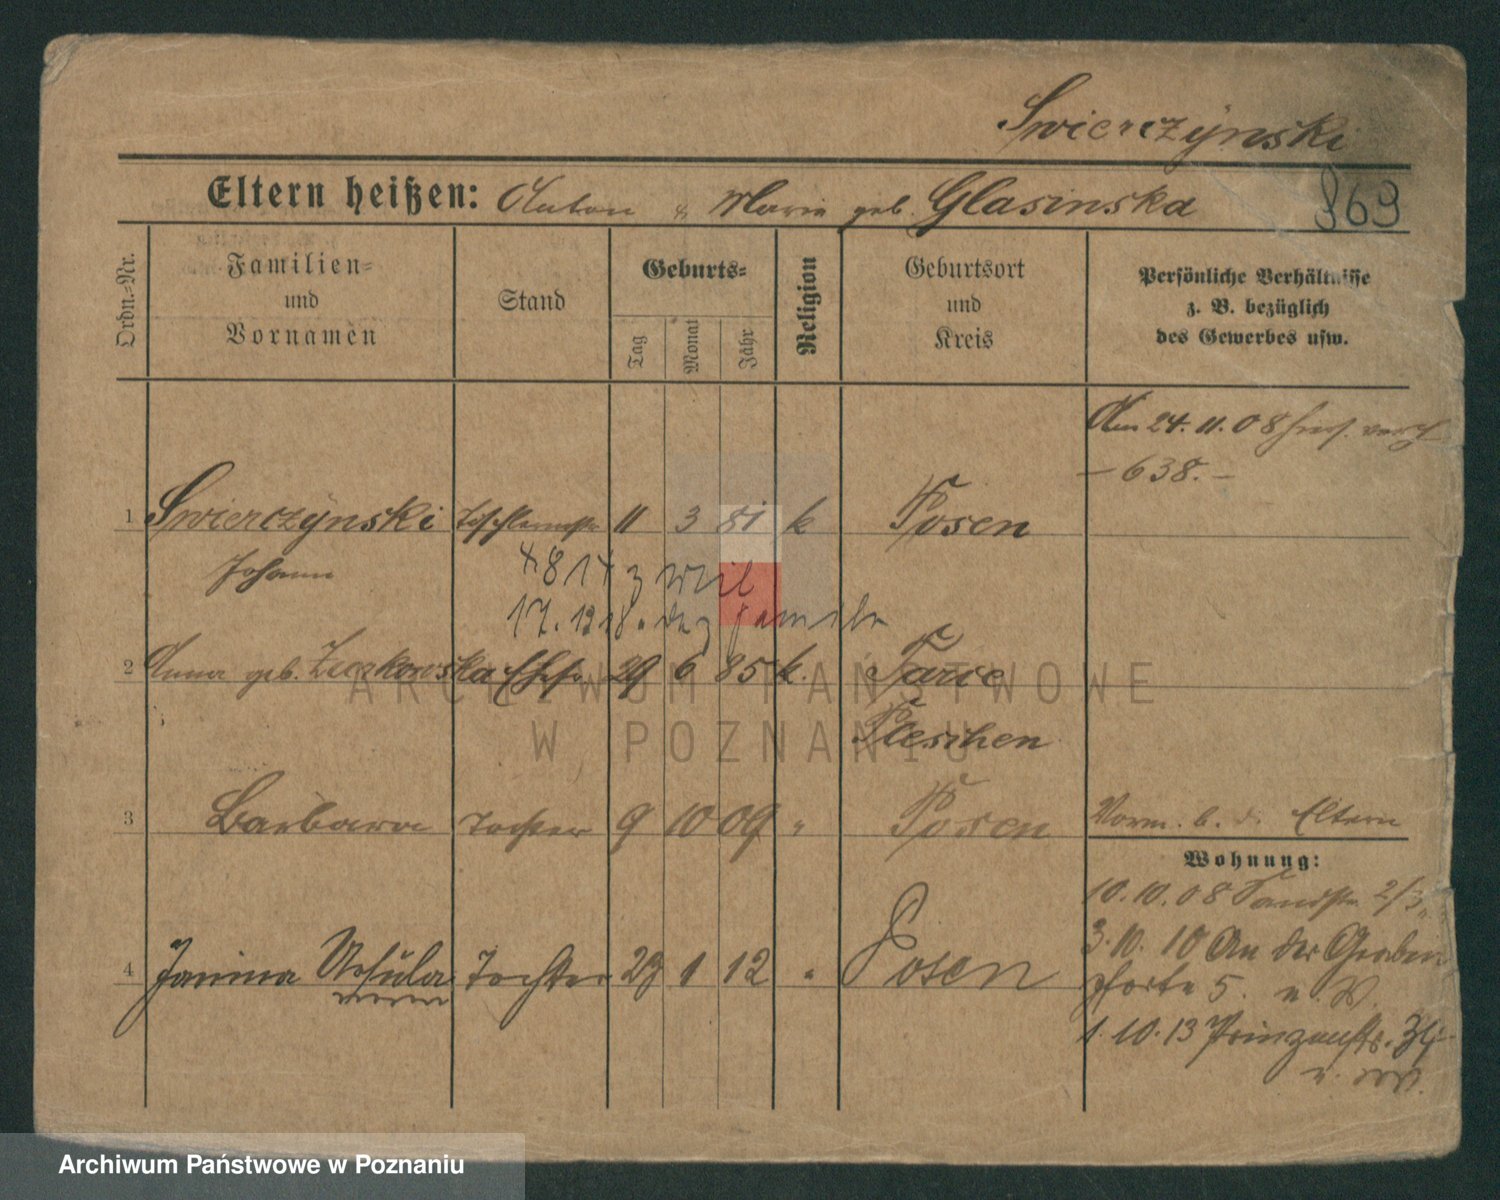 Swierczynski
Eltern heißen: Anton & Marie geb. Glasinska
869
Ordn.-Nr.
Familien-
und
Vornamen
Stand
Geburts-
Tag
Monat
Jahr
Religion
Geburtsort
und
Kreis
Persönliche Verhältnisse
z. B. bezüglich
des Gewerbes usw.
Am 24. 11. 08
– 638. –
1 Swierczynski Tischlermstr 11 3 81 k Posen
Johann
17. 12 18.
2 Anna geb. Ehefr. 29 6 85 k. Tarce
Pleschen
3 Barbara Tochter 9 10 09 " Posen
Vorm. b. d. Eltern
Wohnung:
10. 10. 08
3. 10. 10 An der Graben
pforte 5.
4 Janina Ursula Tochter 29 1 12 " Posen
1. 10. 13 Prinzenstr.
ARCHIWUM PAŃSTWOWE
W POZNANIU
Archiwum Państwowe w Poznaniu